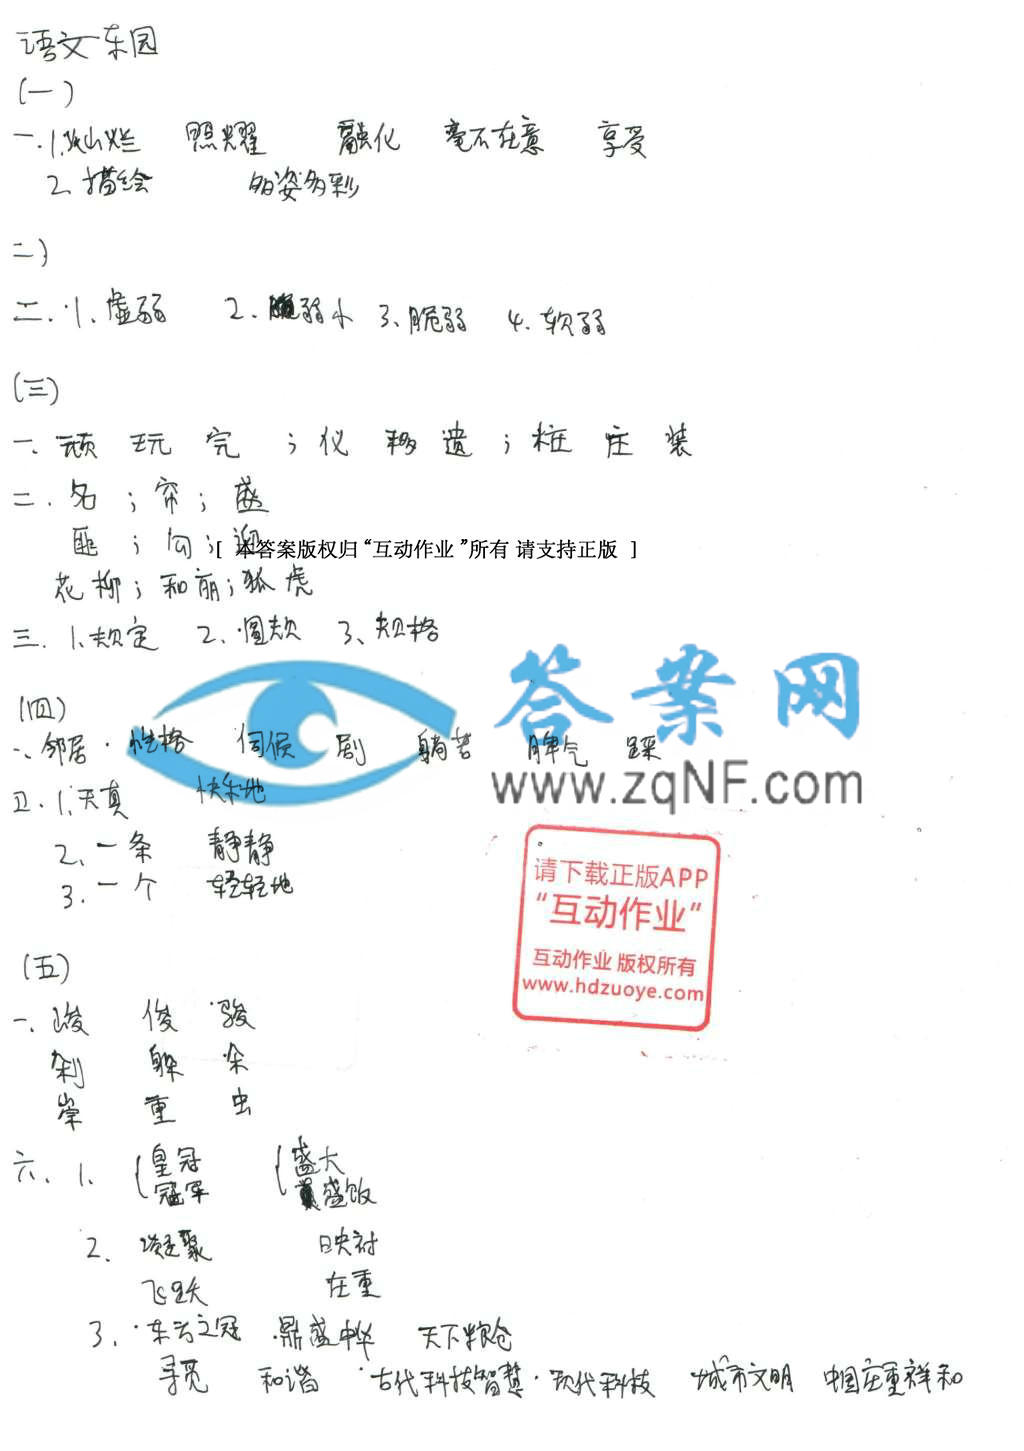 语文乐园
(一)
一.1.灿烂 照耀 融化 毫不在意 享受
2.描绘 多姿多彩
二)
二.1.虚弱 2.弱小 3.脆弱 4.软弱
(三)
一.顽 玩 完 ;仪 移 遗 ;桩 庄 装
二.名 ;帘;盛
匪 ;勾;迎
[ 本答案版权归“互动作业”所有 请支持正版 ]
花柳;和丽;狐虎
三.1.规定 2.圆规 3.规格
答案网
(四)
一、邻居 性格 伺候 剧 躺着 脾气 踩
www.zqNF.com
四.1.天真 快乐地
2.一条 静静
3.一个 轻轻地
请下载正版APP
“互动作业“
互动作业 版权所有
www.hdzuoye.com
(五)
一、峻 俊 骏
剁 躲 朵
崇 重 虫
六、1. 皇冠 盛大
冠军 盛饭
2. 凝聚 映衬
飞跃 庄重
3. 东方之冠 鼎盛中华 天下粮仓
寻觅 和谐 古代科技智慧 现代科技 城市文明 中国庄重祥和